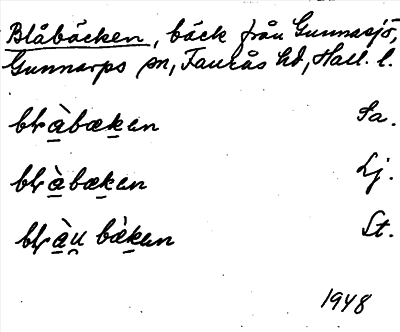 Blåbäcken, bäck från Gunnasjö,
Gunnarps sn, Faurås hd, Hall. l.
blàbækan Fa.
blàbækan Lj.
blàu bækan St.
1948